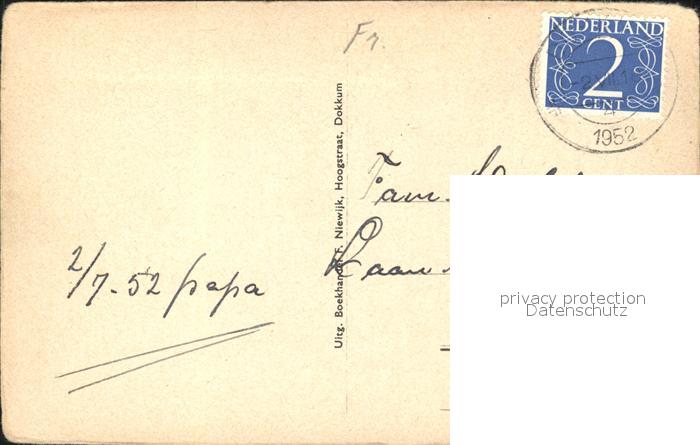 Fr.
NEDERLAND
2
CENT
1952
Uitg. Boekhandel F. Niewijk, Hoogstraat, Dokkum
Fam.
Laan
2/7-52 papa
privacy protection
Datenschutz